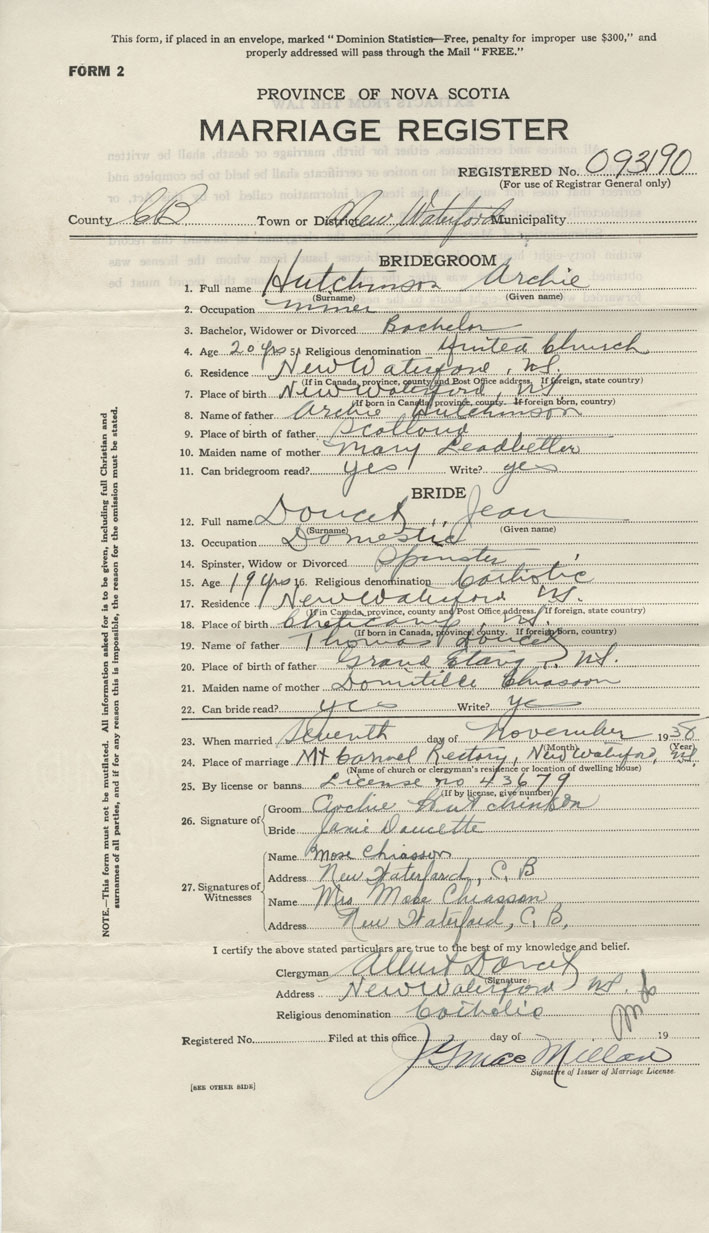 This form, if placed in an envelope, marked "Dominion Statistics—Free, penalty for improper use $300," and
properly addressed will pass through the Mail "FREE."
FORM 2
PROVINCE OF NOVA SCOTIA
MARRIAGE REGISTER
REGISTERED No. 093190
(For use of Registrar General only)
County CB Town or District New Waterford Municipality
BRIDEGROOM
1. Full name Hutchinson Archie
(Surname) (Given name)
2. Occupation miner
3. Bachelor, Widower or Divorced Bachelor
4. Age 20 yrs 5. Religious denomination United Church
6. Residence New Waterford, N.S.
(If in Canada, province, county and Post Office address. If foreign, state country)
7. Place of birth New Waterford, N.S.
(If born in Canada, province, county. If foreign born, country)
8. Name of father Archie Hutchinson
9. Place of birth of father Scotland
10. Maiden name of mother Mary Leadbetter
11. Can bridegroom read? yes Write? yes
BRIDE
12. Full name Doucet, Jean
(Surname) (Given name)
13. Occupation Domestic
14. Spinster, Widow or Divorced Spinster
15. Age 19 yrs 16. Religious denomination Catholic
17. Residence New Waterford N.S.
(If in Canada, province, county and Post Office address. If foreign, state country)
18. Place of birth Cheticamp, N.S.
(If born in Canada, province, county. If foreign born, country)
19. Name of father Thomas Doucet
20. Place of birth of father Grand Etang, N.S.
21. Maiden name of mother Domitille Chiasson
22. Can bride read? yes Write? yes
23. When married Seventh day of November 1938
(Month) (Year)
24. Place of marriage Mt Carmel Rectory, New Waterford, N.S.
(Name of church or clergyman's residence or location of dwelling house)
25. By license or banns License no 43679
(If by license, give number)
26. Signature of
Groom Archie Hutchinson
Bride Janie Doucette
27. Signatures of Witnesses
Name Mose Chiasson
Address New Waterford, C. B
Name Mrs Mose Chiasson
Address New Waterford, C, B,
I certify the above stated particulars are true to the best of my knowledge and belief.
Clergyman Albert Doucet
(Signature)
Address New Waterford N.S.
Religious denomination Catholic
Registered No. Filed at this office day of 19
J G MacMillan
Signature of Issuer of Marriage License
[SEE OTHER SIDE]
NOTE.—This form must not be mutilated. All information asked for is to be given, including full Christian and
surnames of all parties, and if for any reason this is impossible, the reason for the omission must be stated.